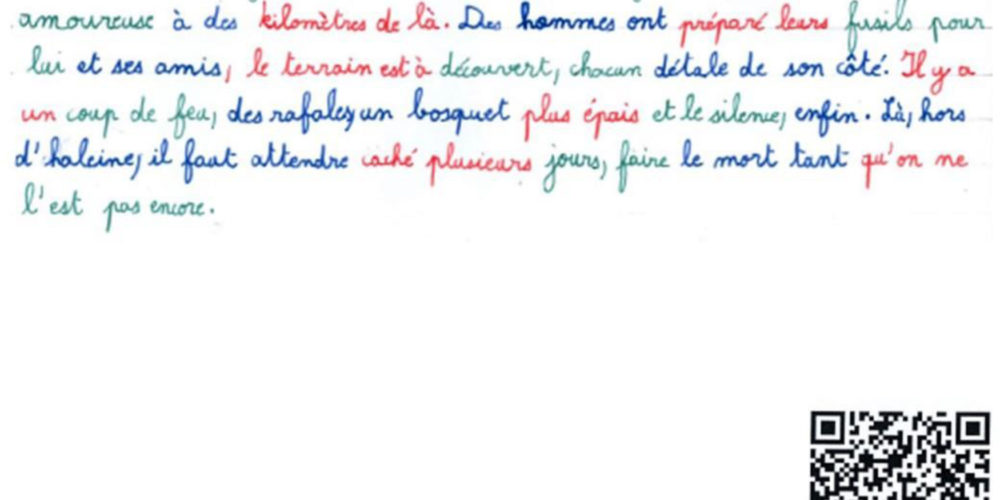 amoureuse à des kilomètres de là. Des hommes ont préparé leurs fusils pour
lui et ses amis, le terrain est à découvert, chacun détale de son côté. Il y a
un coup de feu, des rafales, un bosquet plus épais et le silence, enfin. Là, hors
d'haleine, il faut attendre caché plusieurs jours, faire le mort tant qu'on ne
l'est pas encore.